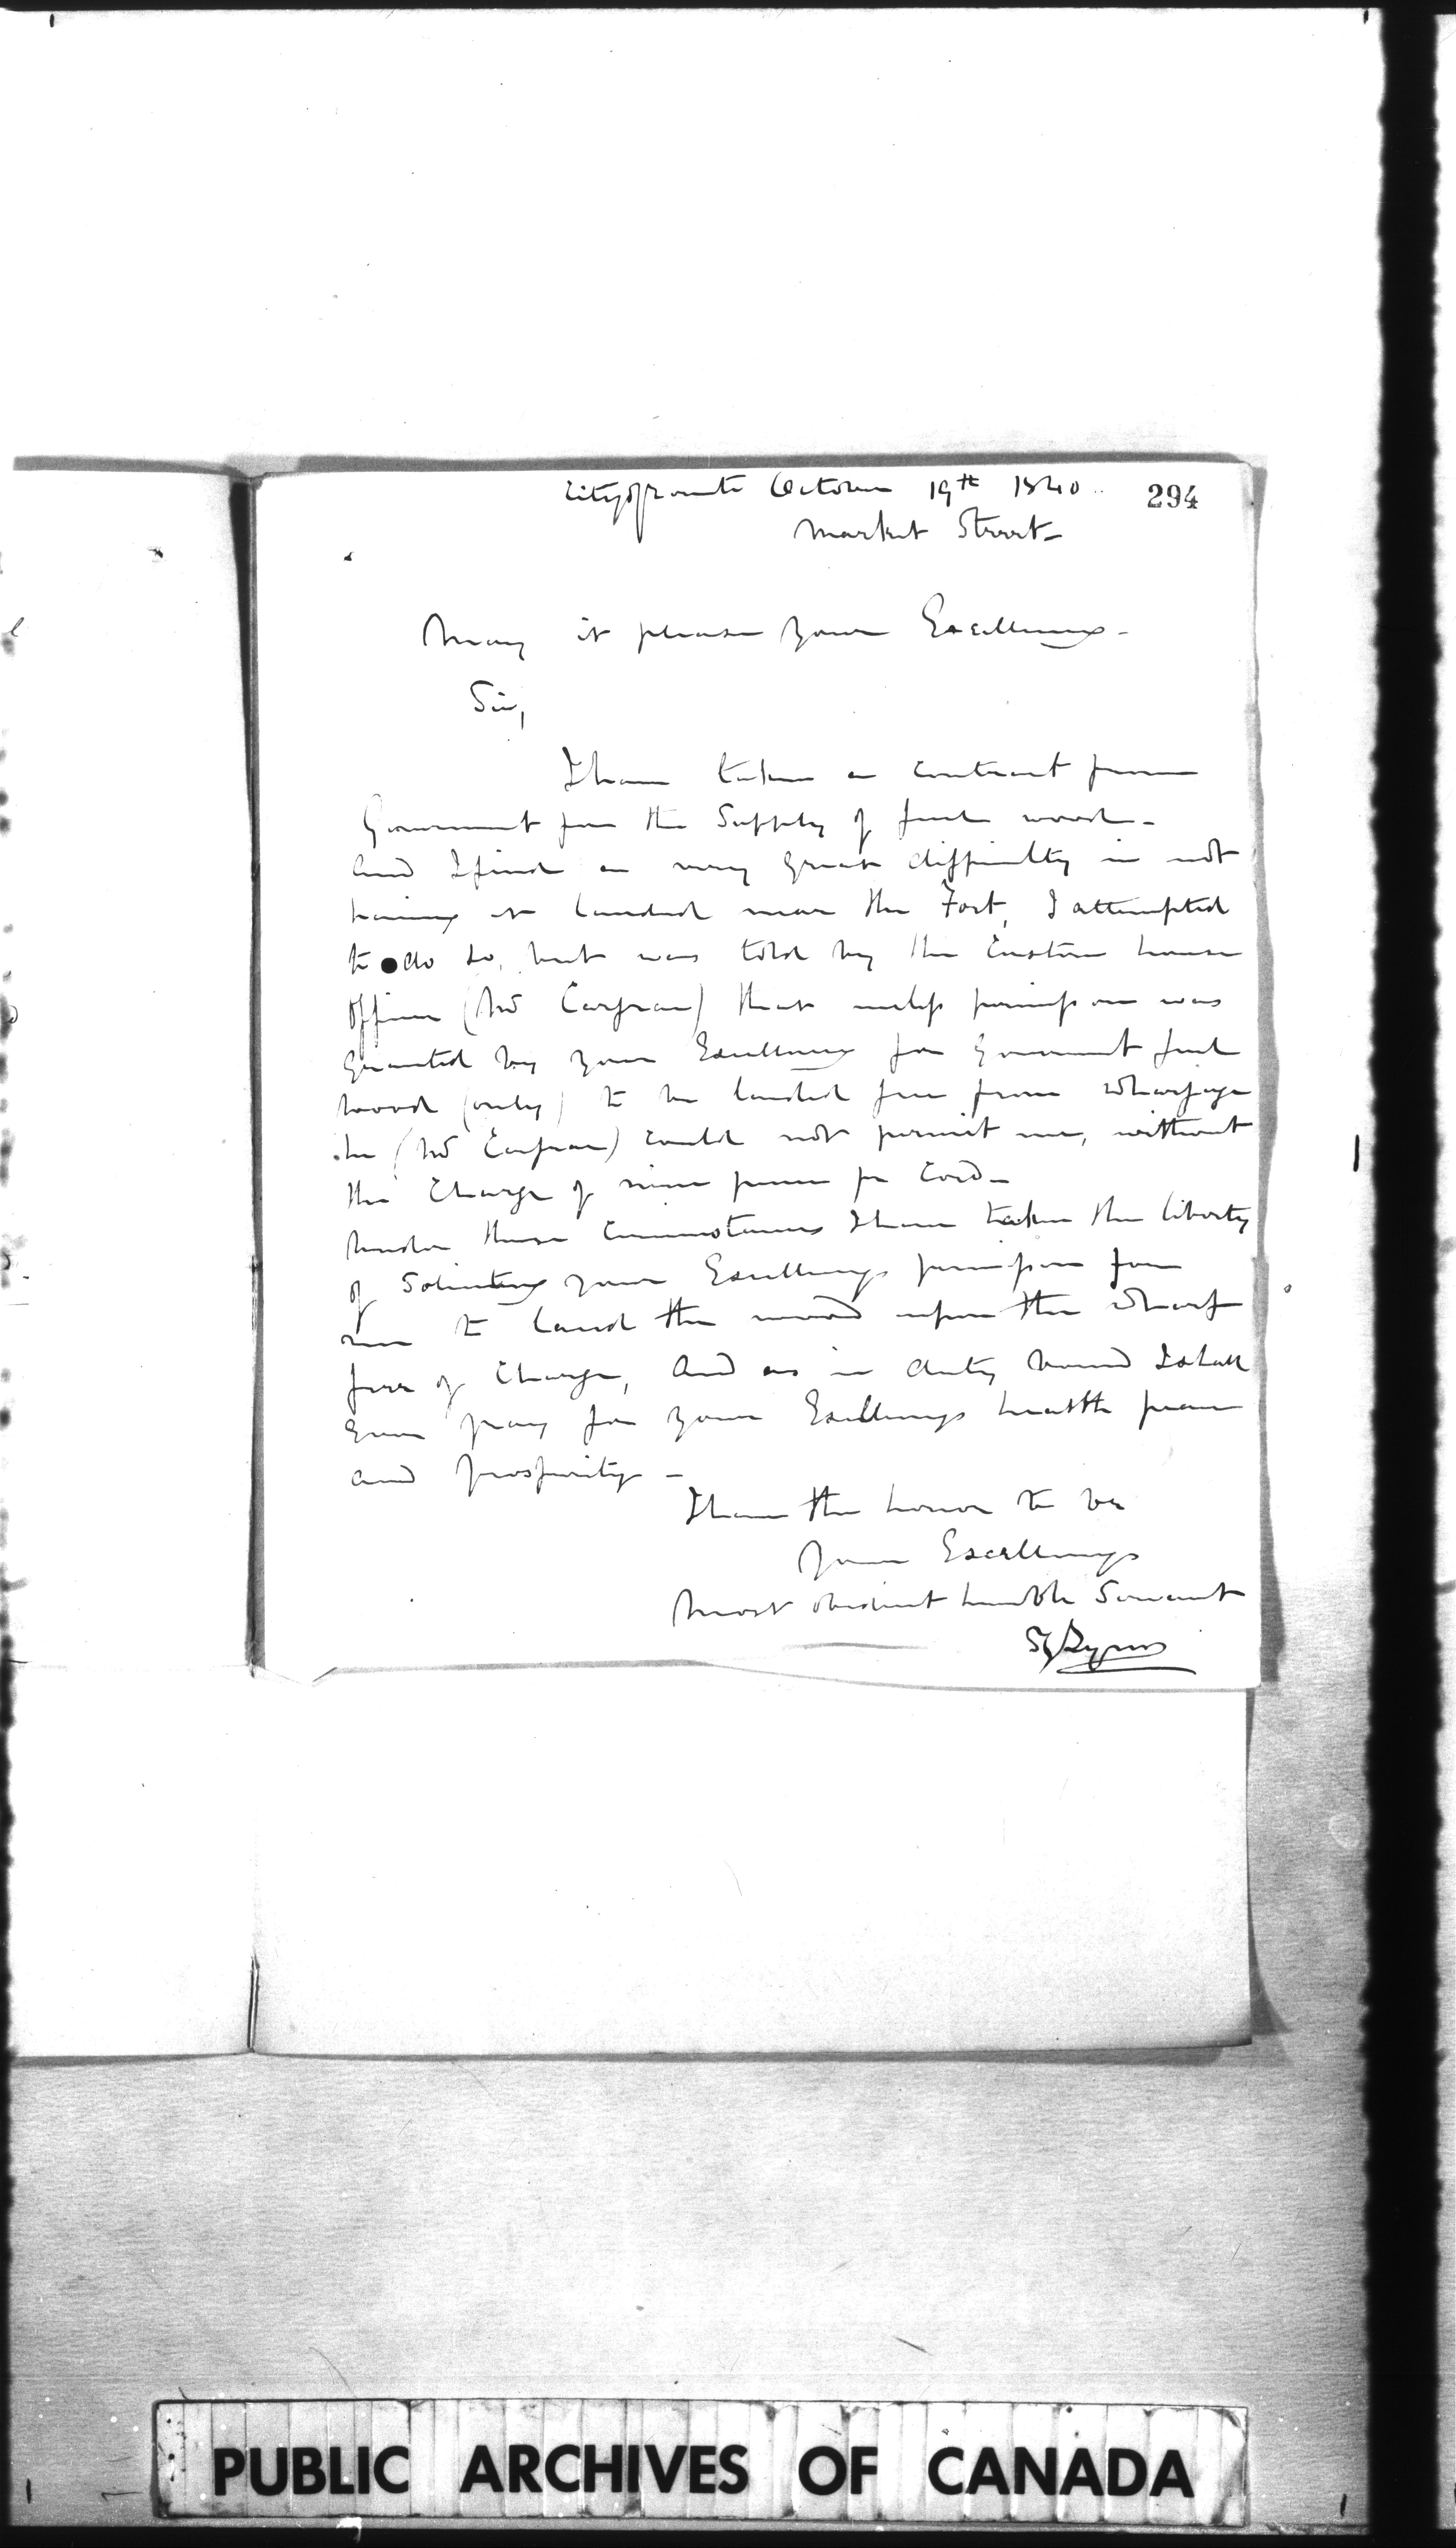 City of Toronto October 19th 1840
294
Market Street-
May it please your Excellency-
Sir,
I have taken a contract from
Government for the Supply of fuel wood-
And I find a very great difficulty in not
having it landed near the Fort, I attempted
to do so, but was told by the Custom house
Officer (Mr Carfrae) that unless permission was
granted by your Excellency for Government fuel
wood (only) to be landed free from wharfage
he (Mr Carfrae) could not permit me, without
the Charge of nine pence per Cord-
Under these Circumstances I have taken the liberty
of Soliciting your Excellency's permission for
me to land the wood upon the wharf
free of Charge, And as in duty bound I shall
Ever pray for your Excellency's health peace
and prosperity-
I have the honor to be
Your Excellency's
Most obedient humble Servant
PUBLIC ARCHIVES OF CANADA